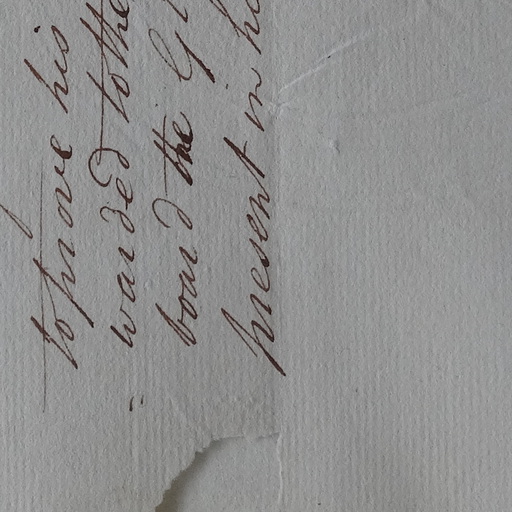 to prove his
"warded to the
board the
present in